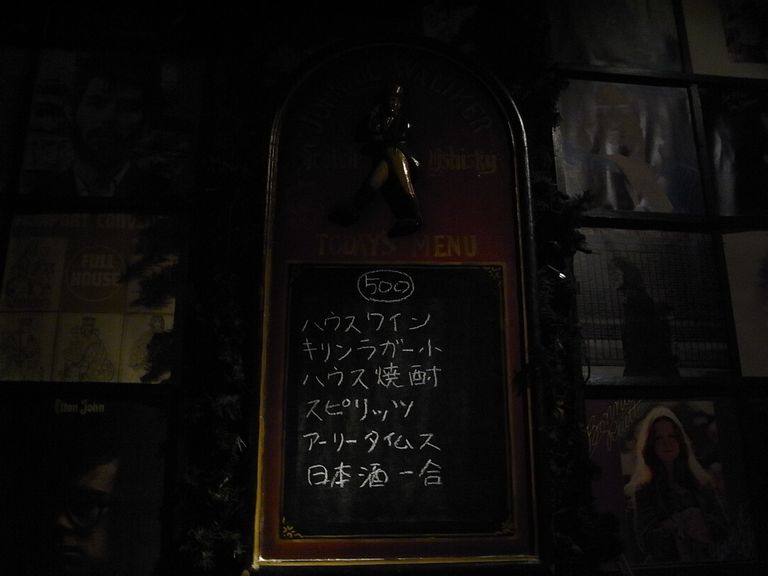 JOHNNIE WALKER
Whisky
TODAY'S MENU
500
ハウスワイン
キリンラガー小
ハウス焼酎
スピリッツ
アーリータイムス
日本酒一合
FULL
HOUSE
Elton John